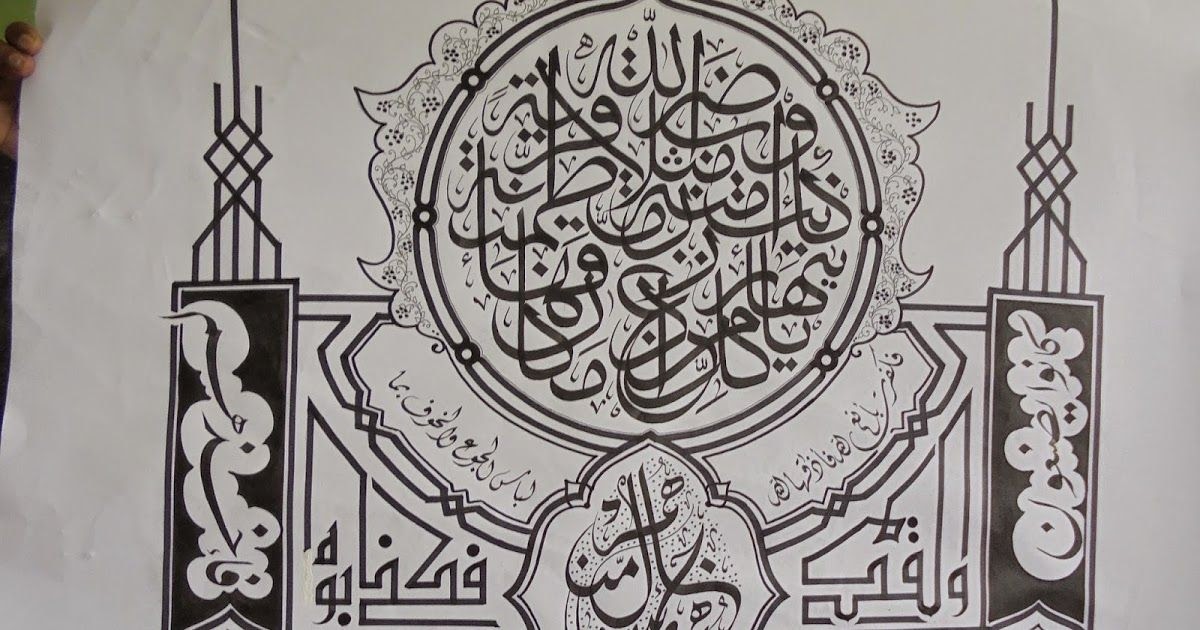 وضرب الله مثلا قرية كانت آمنة مطمئنة يأتيها رزقها رغدا من كل مكان
فكفرت بأنعم الله فأذاقها الله
لباس الجوع والخوف بما
كانوا يصنعون
ولقد
جاءهم رسول منهم
فكذبوه
فأخذهم